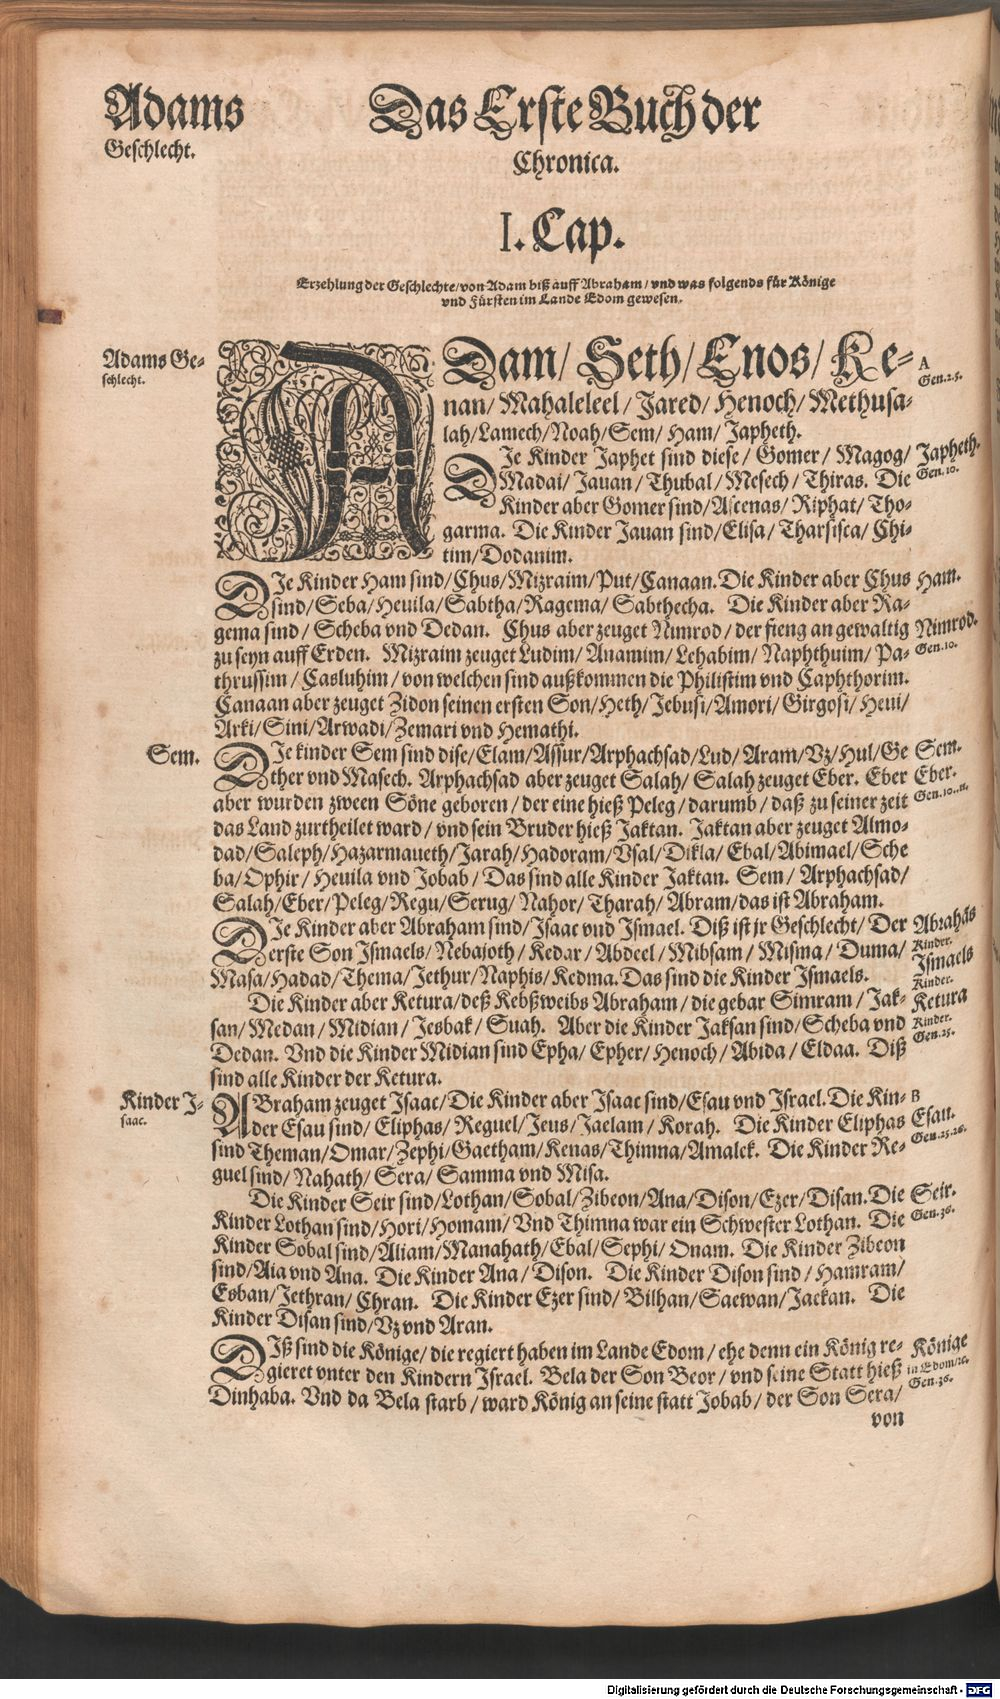 Adams
Geschlecht.
Das Erste Buch der
Chronica.
I. Cap.
Erzehlung der Geschlechte/ von Adam biß auff Abraham/ vnd was folgends für Könige
vnd Fürsten im Lande Edom gewesen.
Adams Ge-
schlecht.
ADam/ Seth/ Enos/ Ke-
nan/ Mahaleleel/ Jared/ Henoch/ Methusa-
lah/ Lamech/ Noah/ Sem/ Ham/ Japheth.
A
Gen.25.
DJe Kinder Japhet sind diese/ Gomer/ Magog/
Madai/ Jauan/ Thubal/ Mesech/ Thiras. Die
Kinder aber Gomer sind/ Ascenas/ Riphat/ Tho-
garma. Die Kinder Jauan sind/ Elisa/ Tharsisca/ Chi-
tim/ Dodanim.
Japheth.
Gen.10.
DJe Kinder Ham sind/ Chus/ Mizraim/ Put/ Canaan. Die Kinder aber Chus
sind/ Seba/ Heuila/ Sabtha/ Ragema/ Sabthecha. Die Kinder aber Ra-
gema sind/ Scheba vnd Dedan. Chus aber zeuget Nimrod/ der fieng an gewaltig
zu seyn auff Erden. Mizraim zeuget Ludim/ Anamim/ Lehabim/ Naphthuim/ Pa-
thrussim/ Casluhim/ von welchen sind außkommen die Philistim vnd Caphthorim.
Canaan aber zeuget Zidon seinen ersten Son/ Heth/ Jebusi/ Amori/ Girgosi/ Heui/
Arki/ Sini/ Arwadi/ Zemari vnd Hemathi.
Ham.
Nimrod.
Gen.10.
Sem.
DJe kinder Sem sind dise/ Elam/ Assur/ Arphachsad/ Lud/ Aram/ Vz/ Hul/ Ge
ther vnd Masech. Arphachsad aber zeuget Salah/ Salah zeuget Eber. Eber
aber wurden zween Söne geboren/ der eine hieß Peleg/ darumb/ daß zu seiner zeit
das Land zurtheilet ward/ vnd sein Bruder hieß Jaktan. Jaktan aber zeuget Almo-
dad/ Saleph/ Hazarmaueth/ Jarah/ Hadoram/ Vsal/ Dikla/ Ebal/ Abimael/ Sche
ba/ Ophir/ Heuila vnd Jobab/ Das sind alle Kinder Jaktan. Sem/ Arphachsad/
Salah/ Eber/ Peleg/ Regu/ Serug/ Nahor/ Tharah/ Abram/ das ist Abraham.
Sem.
Eber.
Gen.10.11.
DJe Kinder aber Abraham sind/ Isaac vnd Ismael. Diß ist jr Geschlecht/ Der
erste Son Ismaels/ Nebajoth/ Kedar/ Abdeel/ Mibsam/ Misma/ Duma/
Masa/ Hadad/ Thema/ Jethur/ Naphis/ Kedma. Das sind die Kinder Ismaels.
Abrahās
Kinder.
Ismaels
Kinder.
Die Kinder aber Ketura/ deß Kebßweibs Abraham/ die gebar Simram/ Jak-
san/ Medan/ Midian/ Jesbak/ Suah. Aber die Kinder Jaksan sind/ Scheba vnd
Dedan. Vnd die Kinder Midian sind Epha/ Epher/ Henoch/ Abida/ Eldaa. Diß
sind alle Kinder der Ketura.
Ketura
Kinder.
Gen.25.
Kinder J-
saac.
ABraham zeuget Isaac/ Die Kinder aber Isaac sind/ Esau vnd Israel. Die Kin-
der Esau sind/ Eliphas/ Reguel/ Jeus/ Jaelam/ Korah. Die Kinder Eliphas
sind Theman/ Omar/ Zephi/ Gaetham/ Kenas/ Thimna/ Amalek. Die Kinder Re-
guel sind/ Nahath/ Sera/ Samma vnd Misa.
B
Esau.
Gen.25.26.
Die Kinder Seir sind/ Lothan/ Sobal/ Zibeon/ Ana/ Dison/ Ezer/ Disan. Die
Kinder Lothan sind/ Hori/ Homam/ Vnd Thimna war ein Schwester Lothan. Die
Kinder Sobal sind/ Aliam/ Manahath/ Ebal/ Sephi/ Onam. Die Kinder Zibeon
sind/ Aia vnd Ana. Die Kinder Ana/ Dison. Die Kinder Dison sind/ Hamram/
Esban/ Jethran/ Chran. Die Kinder Ezer sind/ Bilhan/ Saewan/ Jackan. Die
Kinder Disan sind/ Vz vnd Aran.
Seir.
Gen.36.
DIß sind die Könige/ die regiert haben im Lande Edom/ ehe denn ein König re-
gieret vnter den Kindern Israel. Bela der Son Beor/ vnd seine Statt hieß
Dinhaba. Vnd da Bela starb/ ward König an seine statt Jobab/ der Son Sera/
von
Könige
in Edom/
Gen.36.
Digitalisierung gefördert durch die Deutsche Forschungsgemeinschaft - DFG